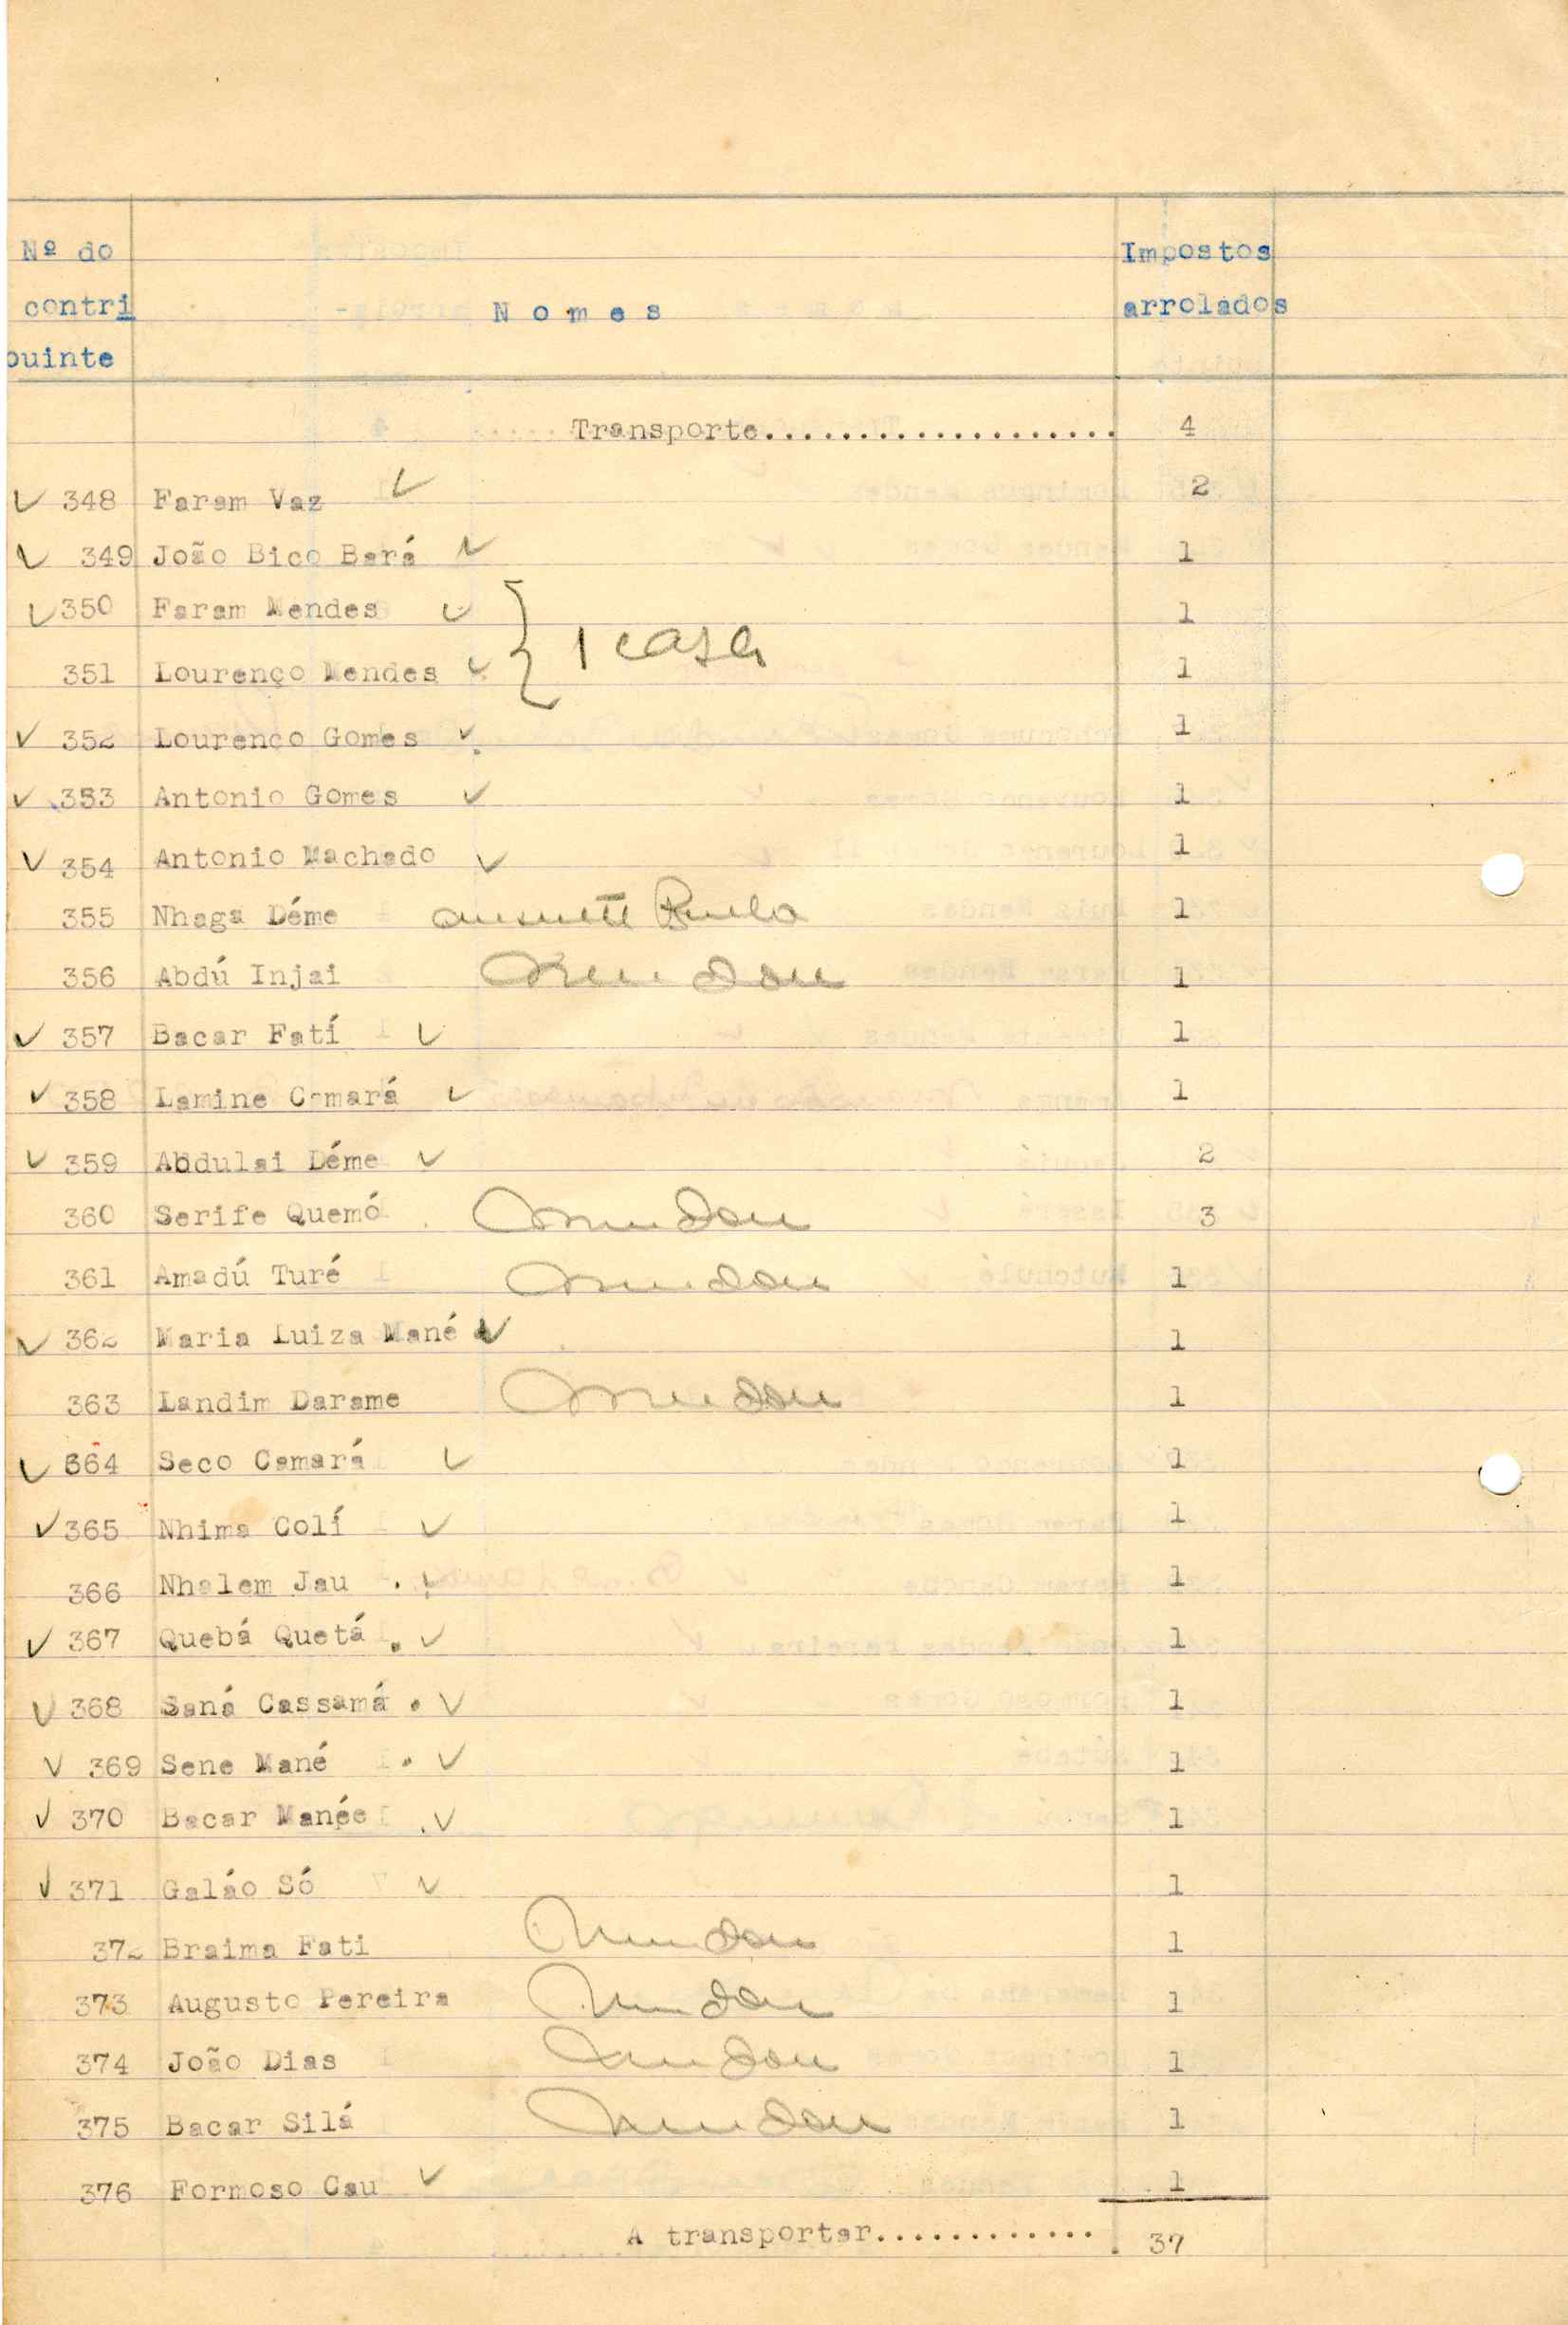 Nº do
contri
buinte
N o m e s
Impostos
arrolados
Transporte................... 4
348 Faram Vaz 2
349 João Bico Bará 1
350 Faram Mendes 1
1 casa
351 Lourenço Mendes 1
352 Lourenco Gomes 1
353 Antonio Gomes 1
354 Antonio Machado 1
355 Nhaga Déme ausente 1
356 Abdú Injai 1
357 Bacar Fatí 1
358 Lamine Camará 1
359 Abdulai Déme 2
360 Serife Quemó 3
361 Amadú Turé 1
362 Maria Luiza Mané 1
363 Landim Darame 1
364 Seco Camará 1
365 Nhima Colí 1
366 Nhalem Jau 1
367 Quebá Quetá 1
368 Saná Cassamá 1
369 Sene Mané 1
370 Bacar Manée 1
371 Galáo Só 1
372 Braima Fati 1
373 Augusto Pereira 1
374 João Dias 1
375 Bacar Silá 1
376 Formoso Cau 1
A transportar............. 37